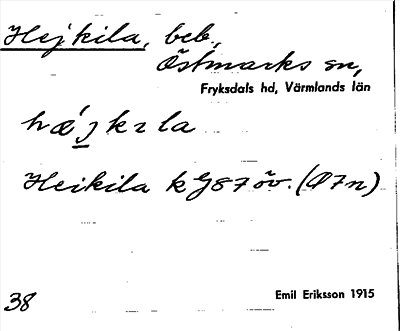 Hejkila, beb.,
Östmarks sn,
Fryksdals hd, Värmlands län
hǽjkɪla
Heikila kG87öv. (Ø7n)
38
Emil Eriksson 1915